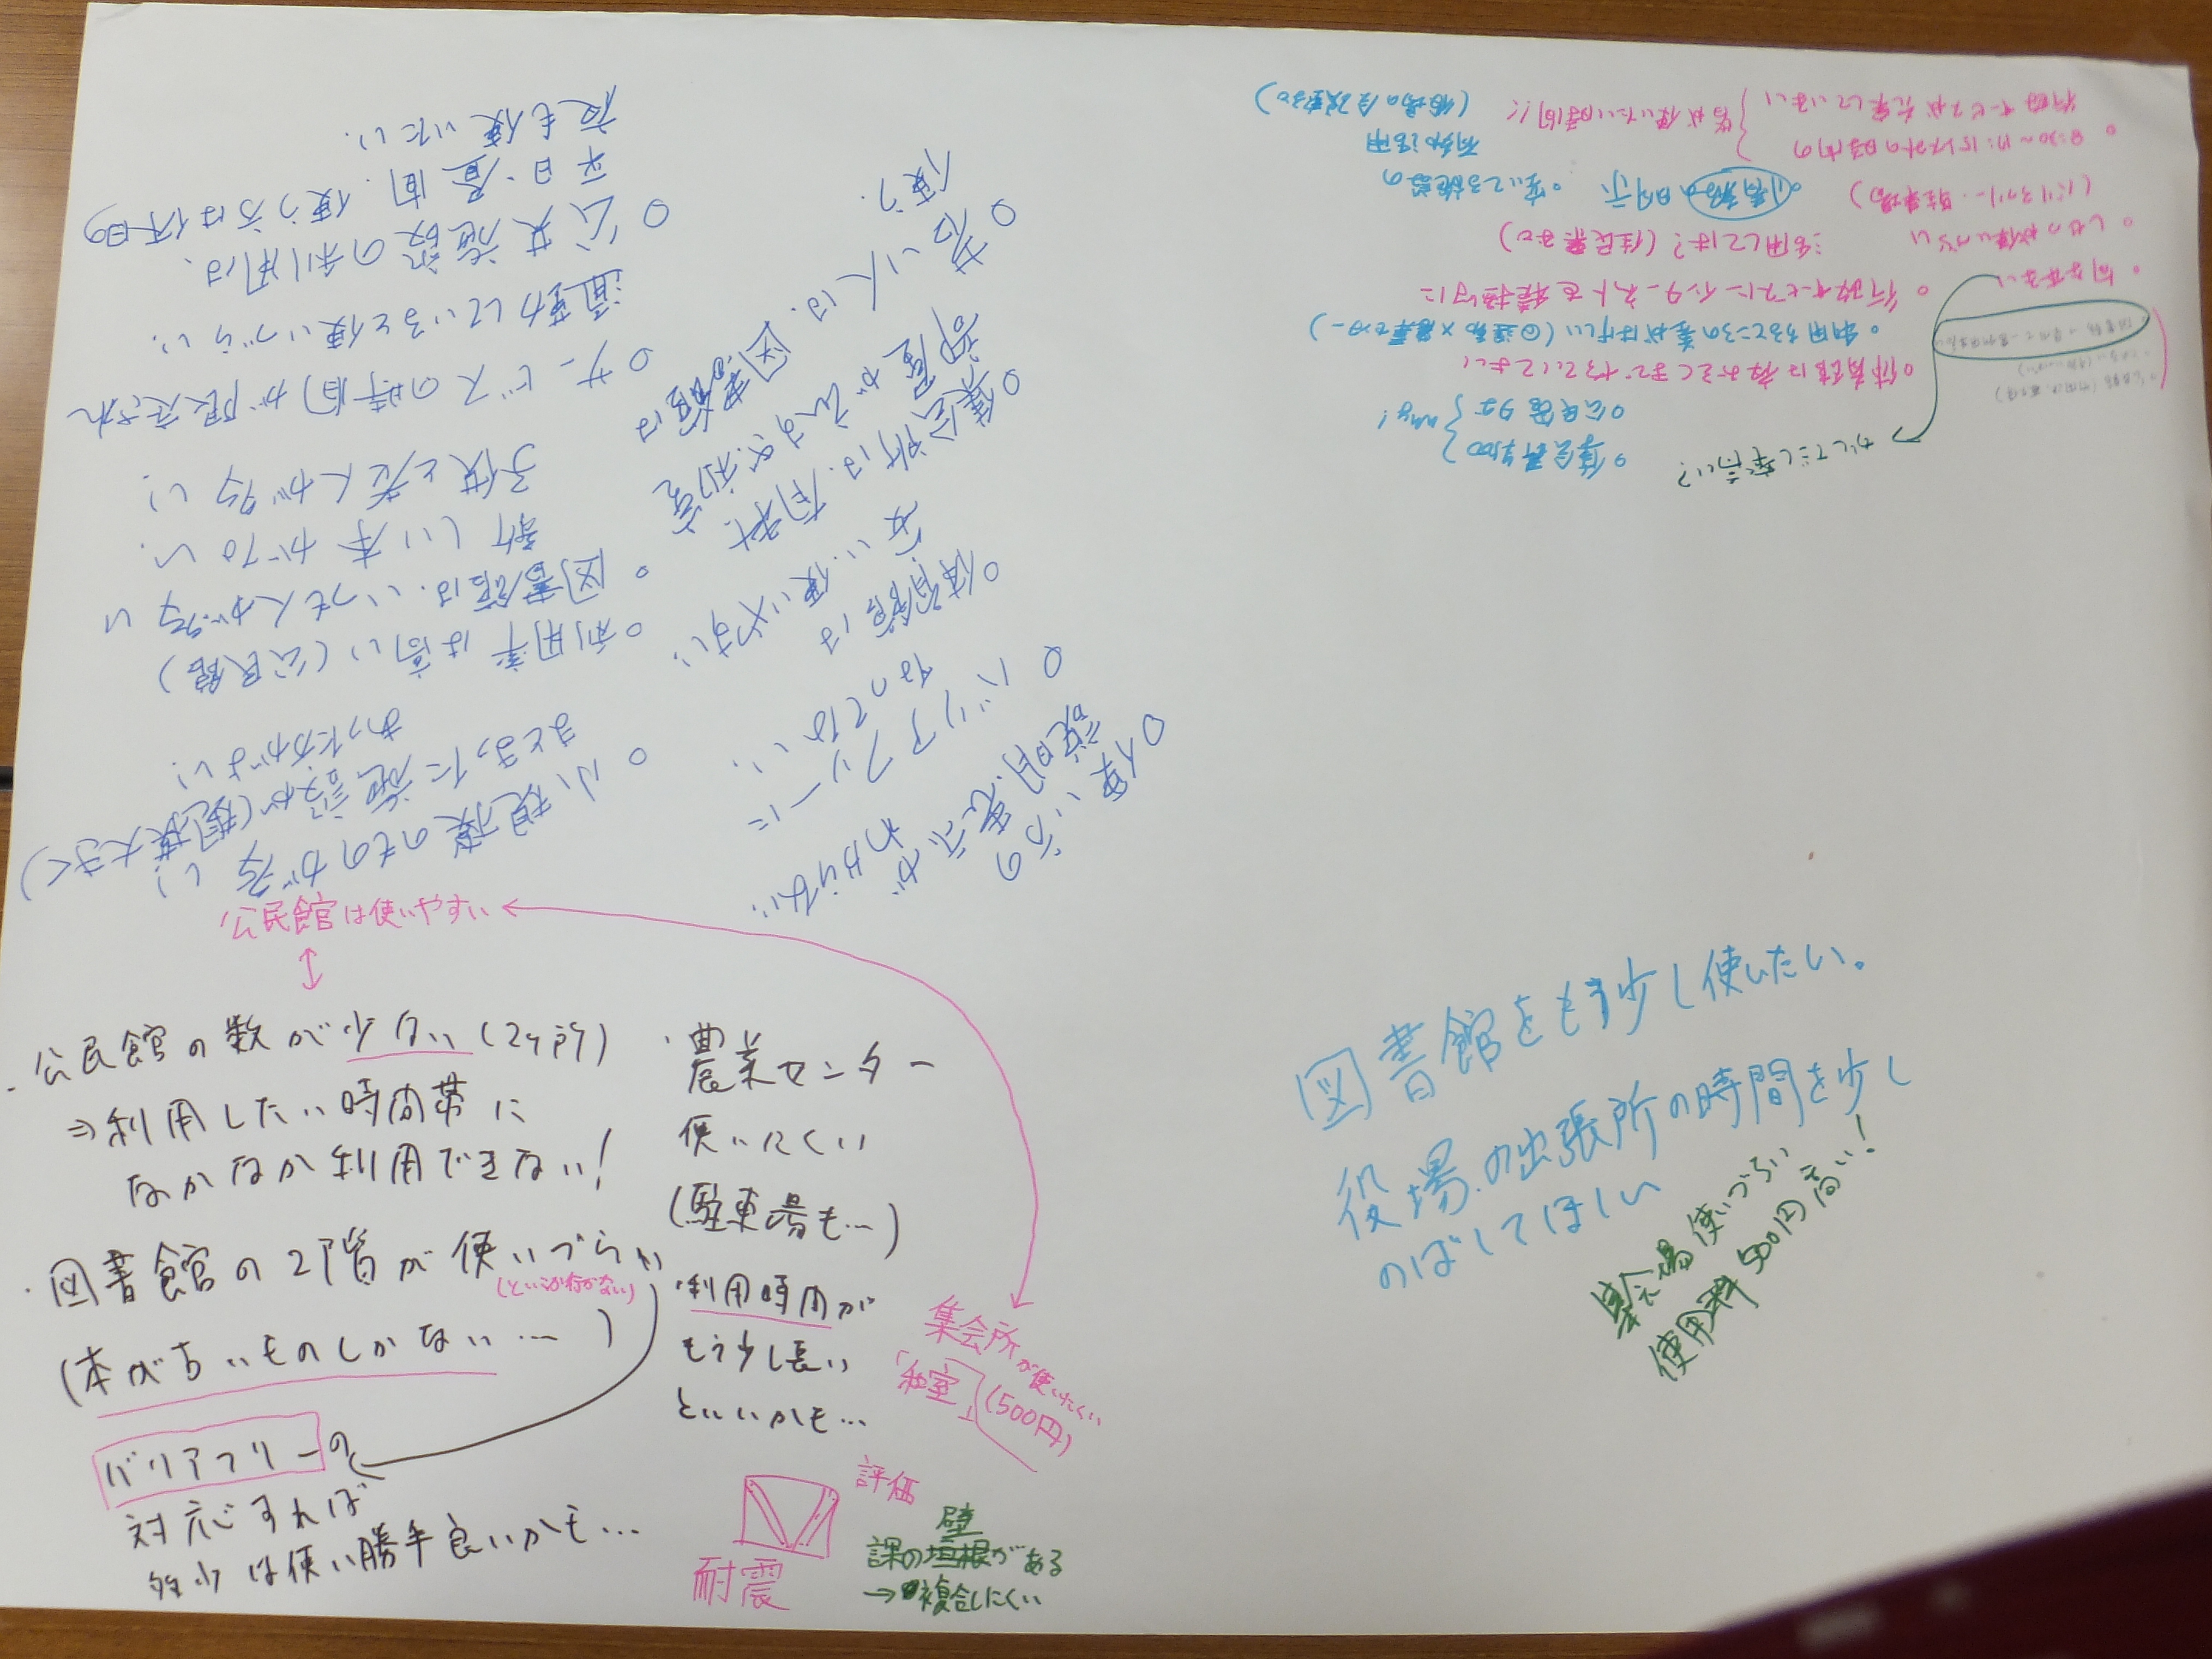 公民館は使いやすい
・公民館の数が少ない(2ヶ所)
⇒利用したい時間帯に
なかなか利用できない!
・図書館の2階が使いづらい
(というか行かない)
(本が古いものしかない…)
バリアフリーの
対応すれば
多少は使い勝手良いかも…
・農業センター
使いにくい
(駐車場も…)
・利用時間が
もう少し長い
といいかも…
集会所が使いにくい
「和室」(500円)
評価
耐震
壁
課の垣根がある
→複合しにくい
図書館をもう少し使いたい。
役場の出張所の時間を少し
のばしてほしい
集会場使いづらい
使用料500円高い!
○小規模のものが多い
まとまった施設が(規模大きく)
あった方がよい。
○利用率は高い(公民館)
○図書館は、いつも人が多い
新しい本がない、
子供と老人が多い。
○サービスの時間が限定され
通勤していると使いづらい。
○公共施設の利用は、
平日・昼間、使う方は休日の
夜も使いたい。
○使い方の
説明、表示が
わからない。
○バリアフリーに
なってない。
○体育館は
安い、使いやすい。
○集会所は、有料、
部屋が
○若い人は、図書館は
使う?
○集会所¥500
○公民館タダ
why!
○体育館は夜おそくまでやっていてよい
○利用するところの差がはげしい
○行政サービスにインターネットを積極的に
活用しては?(住民票など)
○情報の明示
○空いてる施設の
有効活用
・何があるか
・しせつが使いづらい
(バリアフリー、駐車場)
・8:30〜17:15以外の時間の
行政サービスが充実していない
皆が使いたい時間!!